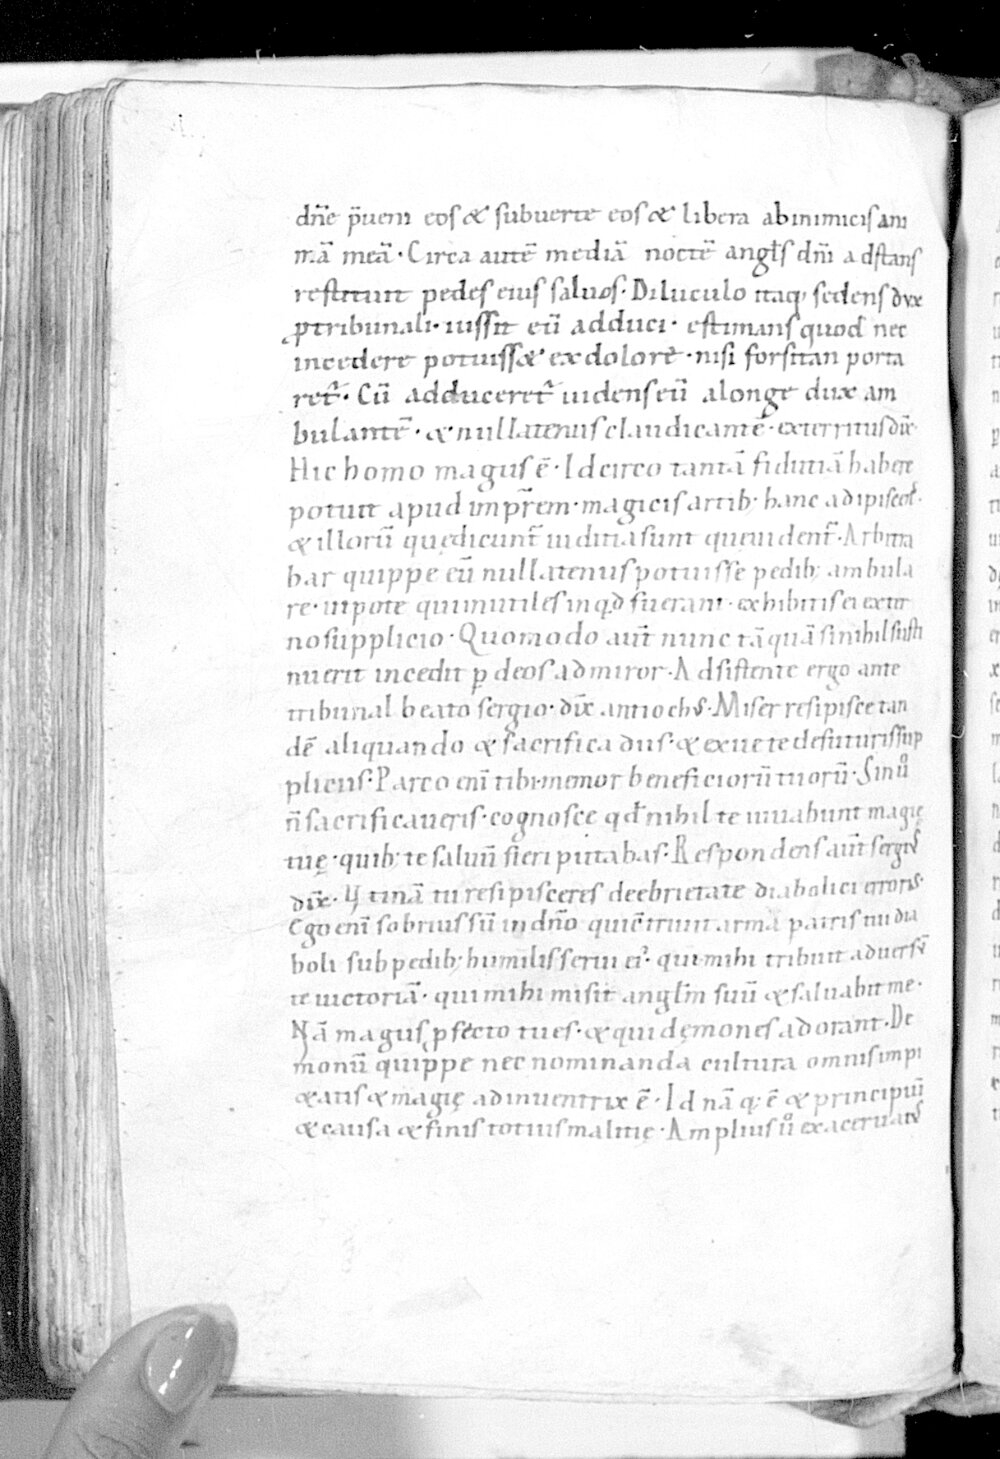 dn̄e p̄ueni eos & subuerte eos & libera ab inimicis ani
mā meā · Circa autē mediā noctē angl̄s dn̄i adstans
restituit pedes eius saluos · Diluculo itaq; sedens dux
ꝓ tribunali · iussit eū adduci · estimans quod nec
incedere potuiss& ex dolore · nisi forsitan porta
ret᷑ · Cū adduceret᷑ uidens eū a longe dux am
bulantē · & nullatenus claudicantē · exterritus dix̄ ·
Hic homo magus ē · Idcirco tantā fidutiā habere
potuit apud imp̄rem · magicis artib; hanc adipiscēs ·
& illorū quę dicunt᷑ inditia sunt que uident᷑ · Arbitra
bar quippe eū nullatenus potuisse pedib; ambula
re · utpote qui inutiles in qd̄ fuerant · exhibitis ei extit
no supplicio · Quomodo aut̄ nunc tā quā si nihil susti
nuerit incedit ꝑ deos admiror · Adsistente ergo ante
tribunal beato sergio · dix̄ antiochꝰ · Miser resipisce tan
dē aliquando & sacrifica dus · & exue te de futuris sup
pliciis · Parco enī tibi memor beneficiorū tuorū · Sin ů
n̄ sacrificaueris · cognosce qd̄ nihil te iuuabunt magię
tuę · quib; te saluū fieri putabas · Respondens aut̄ sergiꝰ
dix̄ · Vtinā tu resipisceres de ebrietate diabolici erroris ·
Ego enī sobrius sū in dn̄o qui c̄triuit arma patris tui dia
boli sub pedib; humilis serui ei᷒ · qui mihi tribuit aduersū
te uictoriā · qui mihi misit angl̄m suū & saluabit me ·
Nā magus ꝓfecto tu es · & qui dęmones adorant · De
monū quippe nec nominanda cultura omnis impi
&atis & magię adinuentrix ē · Id nā q; ē & principiū
& causa & finis totius malitię · Amplius ů exaceruatꝰ